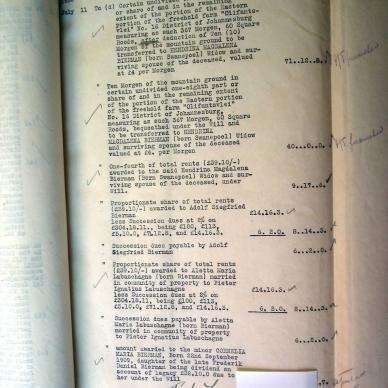 July 11 To (d) Certain undivided
or share of and in the remaining
extent of the portion of the Eastern
portion of the freehold farm "Olifants-
vlei" No. 16 District of Johannesburg
measuring as such 567 Morgen, 50 Square
Roods, after deduction of Ten (10)
Morgen the mountain ground to be
transferred to HENDRINA MAGDALENA
BIERMAN (born Swanepoel) Widow and sur-
viving spouse of the deceased, valued
at £4 per Morgen 71..12..8.
" Ten Morgen of the mountain ground in
certain undivided one-eighth part or
share of and in the remaining extent
of the portion of the Eastern portion
of the freehold farm "Olifantsvlei"
No 16 District of Johannesburg,
measuring as such 567 Morgen, 50 Square
Roods, bequeathed under the Will and
to be transferred to HENDRINA
MAGDALENA BIERMAN (born Swanepoel) Widow
and surviving spouse of the deceased
valued at £4. per Morgen 40..0..0.
" One-fourth of total rents (£39.10/-)
awarded to the said Hendrina Magdalena
Bierman (born Swanepoel) Widow and sur-
viving spouse of the deceased, under
Will. 9..17..6.
" Proportionate share of total rents
(£39.10/-) awarded to Adolf Siegfried
Bierman £14.16.3.
less Succession dues at 2% on
£304.18.11, being £100, £113,
£5.10.0, £7.12.8, and £14.16.3. 6. 2.0. 8..14..3.
" Succession dues payable by Adolf
Siegfried Bierman 6...2..0.
" Proportionate share of total rents
(£39.10/-) awarded to Aletta Maria
Labuschagne (born Bierman) married
in community of property to Pieter
Ignatius Labuschagne £14.16.3.
less Succession dues at 2% on
£304.18.11, being £100, £113,
£5.10.0, £7.12.8, and £14.16.3. 6. 2.0. 8..14..3.
" Succession dues payable by Aletta
Maria Labuschagne (born Bierman)
married in community of property
to Pieter Ignatius Labuschagne 6...2..0.
" amount awarded to the minor CORNELIA
MARIA BIERMAN, Born 22nd September
1909, daughter of the late Frederik
Daniel Bierman being dividend on
account of legacy £28.10.0 due to
her under the Will